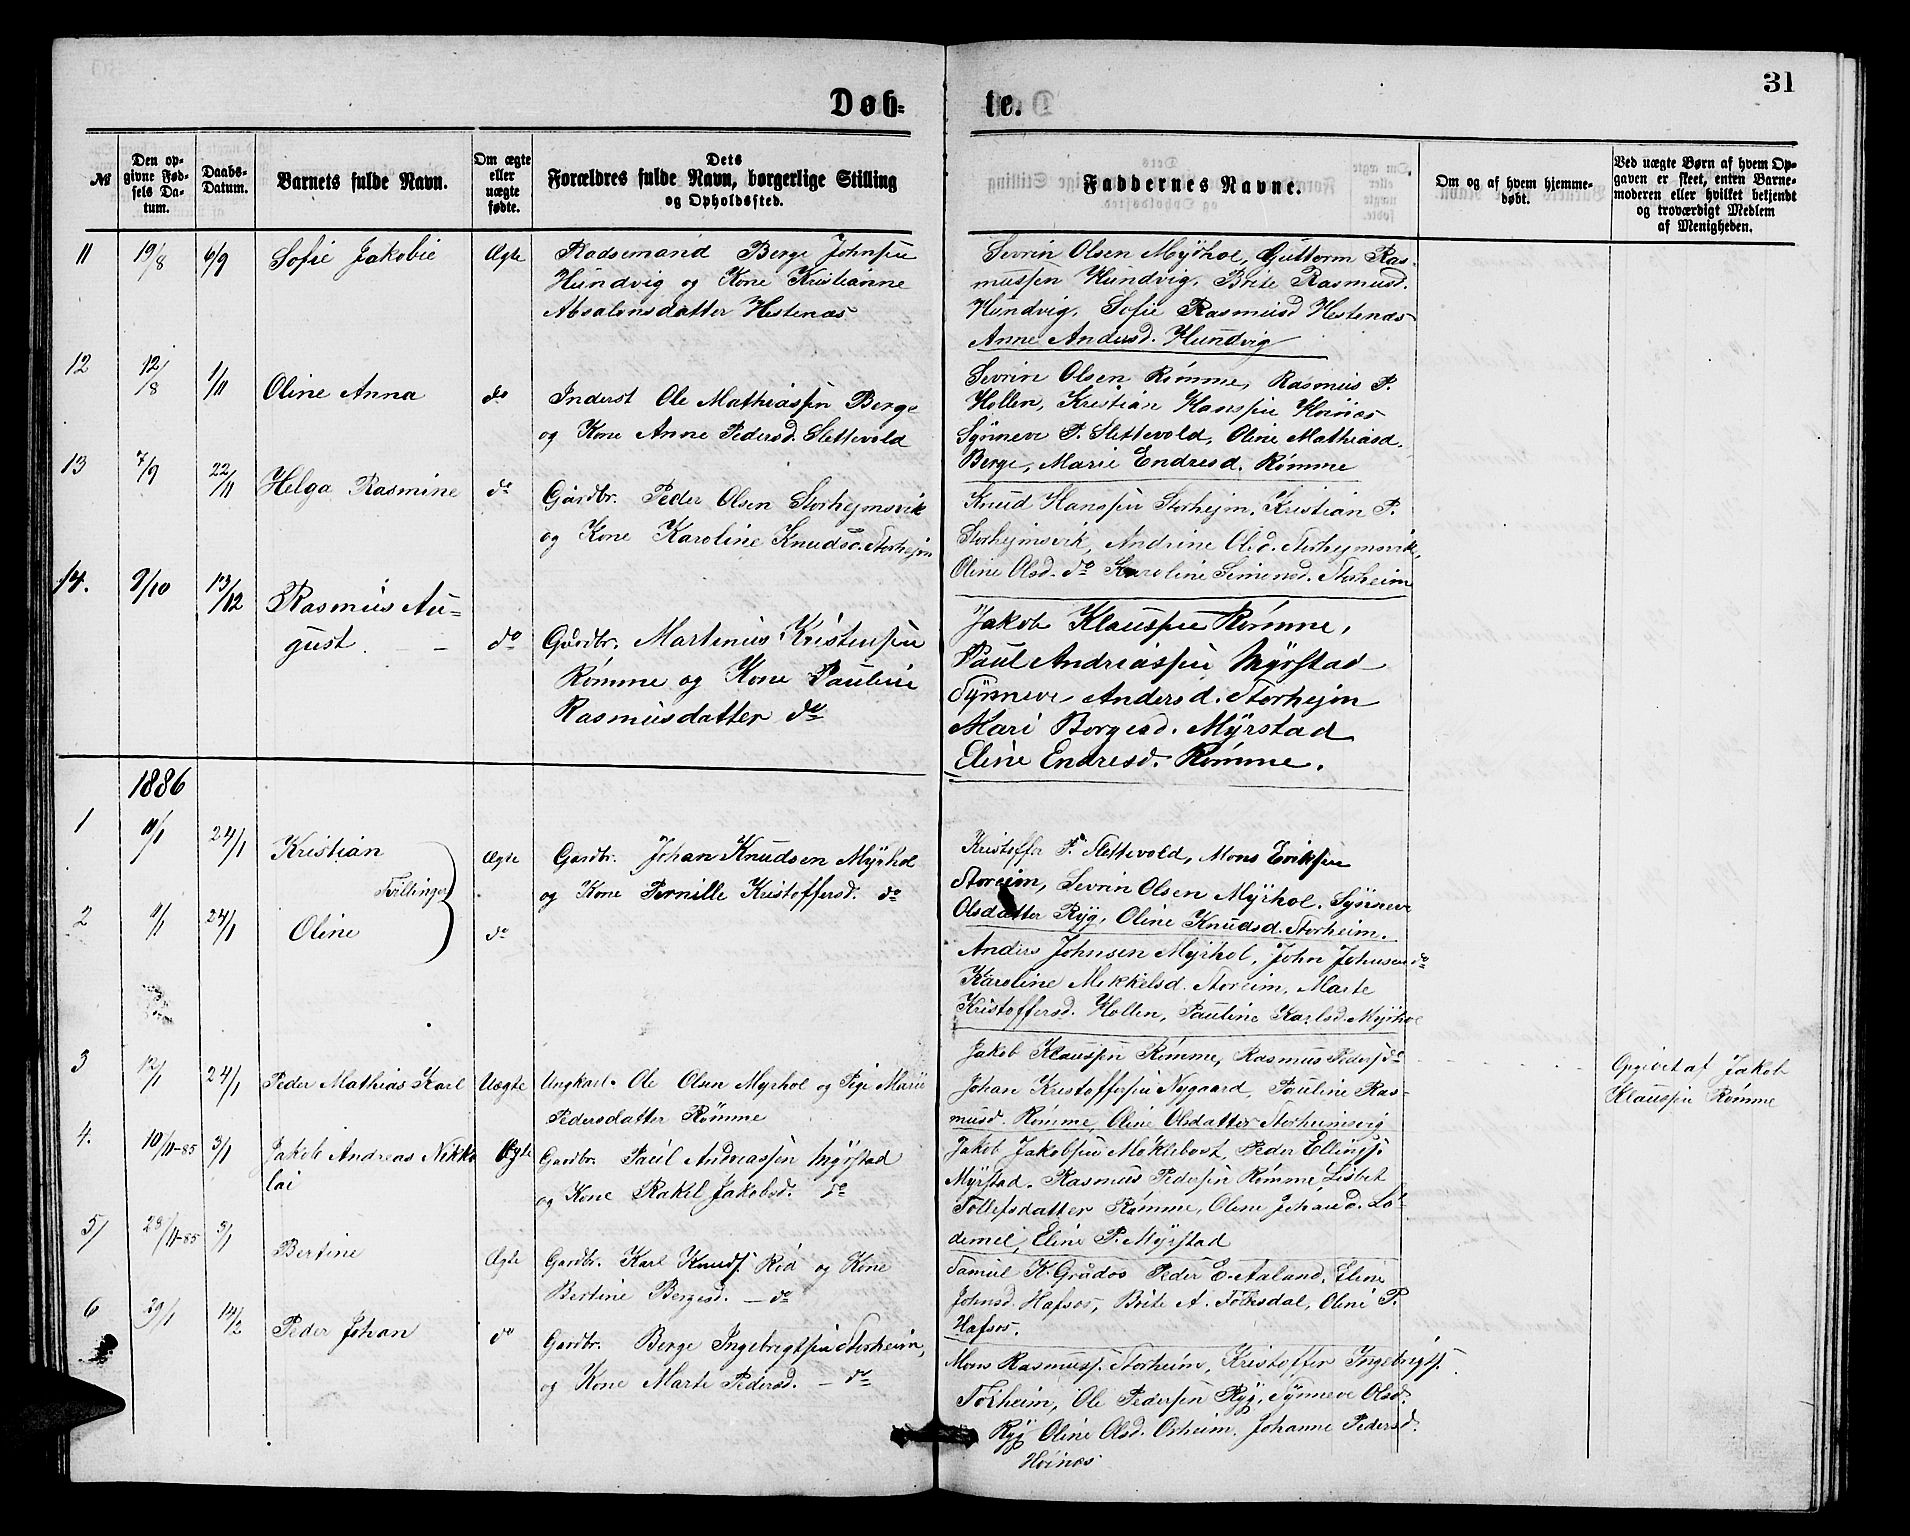 31
Døb-
te.
№
Den op-
givne Fød-
sels Da-
tum.
Daabs-
Datum.
Barnets fulde Navn.
Om ægte
eller
uægte
fødte.
Dets
Forældres fulde Navn, borgerlige Stilling
og Opholdssted.
Faddernes Navne.
Om og af hvem hjemme-
døbt.
Ved uægte Børn af hvem Op-
gaven er skeet, enten Barne-
moderen eller hvilket bekjendt
og troværdigt Medlem
af Menigheden.
11 19/8 6/9 Sofie Jakobie Ægte
Berge Johnsen
Hundvig og Kone Kristianne
Absalonsdatter Hestenæs
Sevrin Olsen Myrhol, Guttorm Ras-
mussen Hundvig, Brite Rasmusd.
Hundvig, Sofie Rasmusd Hestenæs
Anne Andersd. Hundvig
12 12/8 1/11 Oline Anna do
Inderst Ole Mathiassen Berge
og Kone Anne Pedersd. Slettevold
Sevrin Olsen Rømme, Rasmus P.
Hollen, Kristian Hanssen Høinæs
Synneve P. Slettevold, Oline Mathiasd.
Berge, Marie Endresd. Rømme
13 7/9 22/11 Helga Rasmine do
Gårdbr. Peder Olsen Storhejmsvik
og Kone Karoline Knudsd. Storhejm
Knud Hanssen Storhejm, Kristian P.
Storhejmsvik, Andrine Olsd. Storhejmsvik,
Oline Olsd. do Karoline Simensd. Storheim
14. 9/10 13/12 Rasmus Au-
gust do
Gårdbr. Martinus Kristensen
Rømme og Kone Pauline
Rasmusdatter do
Jakob Klaussen Rømme,
Paul Andreassen Myrstad
Synneve Andersd. Storhejm
Mari Borgesd. Myrstad
Eline Endresd. Rømme.
1886
1 11/1 24/1 Kristian Ægte
Tvillinger
2 11/1 24/1 Oline do
Gardbr. Johan Knudsen Myrhol
og Kone Pernille Kristoffersd. do
Kristoffer P. Slettevold, Mons Eriksen
Storeim, Sevrin Olsen Myrhol, Synneve
Olsdatter Ryg, Oline Knudsd. Storheim.
Anders Johnsen Myrhol, John Johnsen do
Karoline Mikkelsd. Storeim, Marte
Kristoffersd. Hollen, Pauline Karlsd. Myrhol
3 12/1 24/1 Peder Mathias Karl Uægte
Ungkarl Ole Olsen Myrhol og Pige Marie
Pedersdatter Rømme
Jakob Klaussen Rømme, Rasmus Peders do
Johan Kristoffersen Nygaard, Pauline Ras-
musd. Rømme, Oline Olsdatter Storheimsvig
Opgivet af Jakob
Klaussen Rømme
4. 10/11-85 3/1 Jakob Andreas Nikko
lai Ægte
Gardbr. Paul Andreassen Myrstad
og Kone Rakel Jakobsd. do
Jakob Jakobsen Møklebost, Peder Ellings
Myrstad, Rasmus Pedersen Rømme, Lisbet
Tollefsdatter Rømme, Oline Johand. Lø-
demel, Eline P. Myrstad
5/ 29/11-85 3/1 Bertine Ægte
Gardbr. Karl Knuds. Rød og Kone
Bertine Bergesd. - do
Samuel K. Grådos Peder E. Aaland, Eline
Johnsd. Hafsos, Brite A. Oline P.
Hafsos.
6 29/1 14/2 Peder Johan do
Gardbr. Berge Ingebrigtsen Storheim,
og Kone Marte Pedersd. - do
Mons Rasmuss. Storheim, Kristoffer Ingebrigts.
Storheim, Ole Pedersen Ryg, Synneve Olsd.
Ryg Oline Olsd. Osheim. Johanne Pedersd.
Høinæs